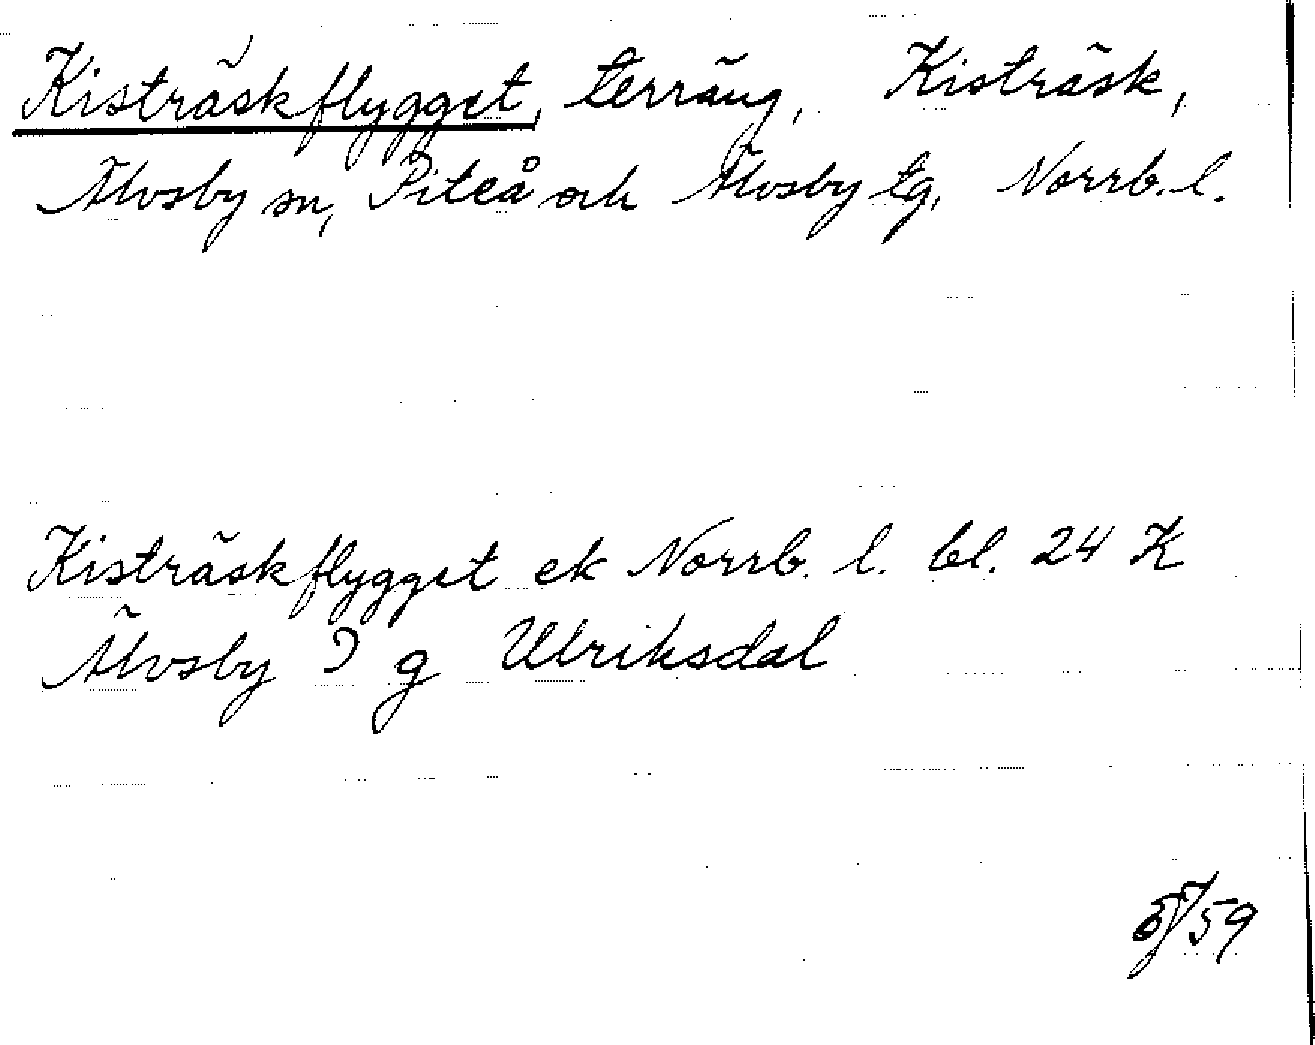 Kisträskflygget, terräng, Kisträsk,
Älvsby sn, Piteå och Älvsby tg, Norrb. l.
Kisträskflygget ek Norrb. l. bl. 24 K
Älvsby J g Ulriksdal
59